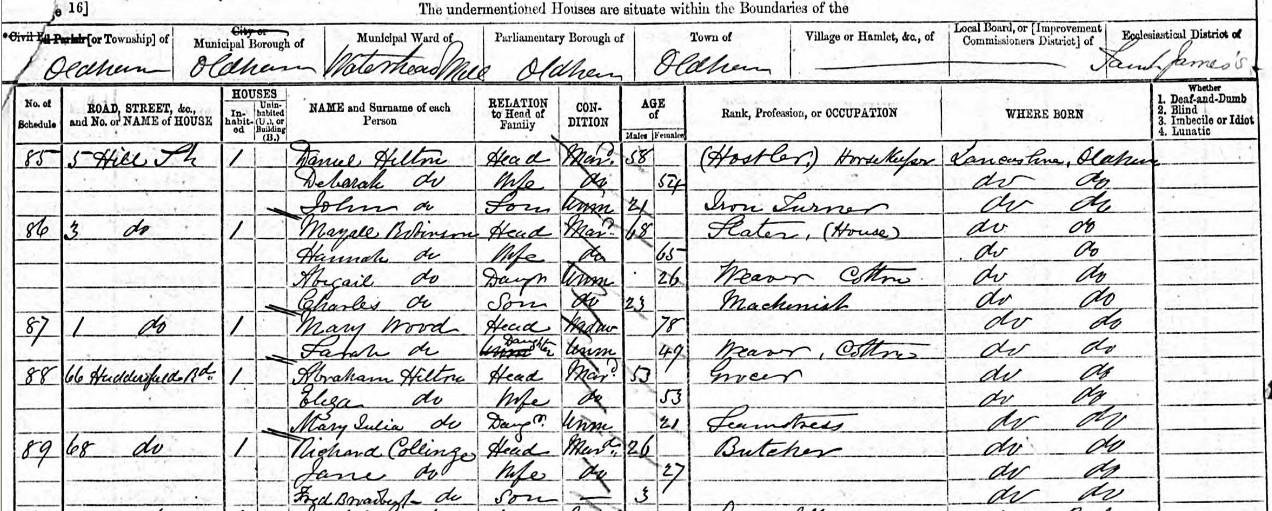 e 16]
The undermentioned Houses are situate within the Boundaries of the
Civil Parish [or Township] of
City or Municipal Borough of
Municipal Ward of
Parliamentary Borough of
Town of
Village or Hamlet, &c., of
Local Board, or [Improvement Commissioners District] of
Ecclesiastical District of
Oldham Oldham Waterhead Mill Oldham Oldham Saint James's
No. of Schedule
ROAD, STREET, &c., and No. or NAME of HOUSE
HOUSES
In-habit-ed
Unin-habited (U.), or Building (B.)
NAME and Surname of each Person
RELATION to Head of Family
CON-DITION
AGE of
Males Females
Rank, Profession, or OCCUPATION
WHERE BORN
Whether
1. Deaf-and-Dumb
2. Blind
3. Imbecile or Idiot
4. Lunatic
85 5 Hill St 1 Daniel Hilton Head Mard. 58 (Hostler,) Horsekeeper Lancashire, Oldham
Deborah do Wife do 54 do do
John do Son Unm 21 Iron Turner do do
86 3 do 1 Mayall Robinson Head Mard. 68 Slater, (House) do do
Hannah do Wife do 65 do do
Abigail do Daugr Unm 26 Weaver Cotton do do
Charles do Son do 23 Machinist do do
87 1 do 1 Mary Wood Head Widow 78 do do
Sarah do Daughter Unm 49 Weaver, Cotton do do
88 66 Huddersfield Rd. 1 Abraham Hilton Head Mard 53 Grocer do do
Eliza do Wife do 53 do do
Mary Julia do Daugr. Unm 21 Seamstress do do
89 68 do 1 Richard Collinge Head Mard. 26 Butcher do do
Jane do Wife do 27 do do
Fred do Son — 3 do do